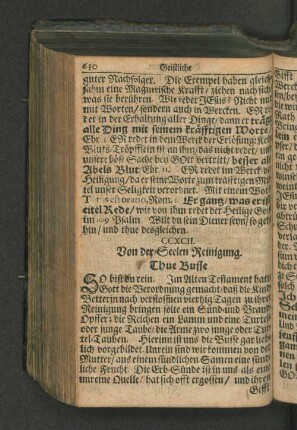 630 Geistliche
guter Nachfolger. Die Exempel haben gleich-
sahm eine Magnetische Krafft / ziehen nach sich
was sie berühren. Wie redet JEsus? Nicht nur
mit Worten / sondern auch in Wercken. ER re-
det in der Erhaltung aller Dinge / dann er trägt
alle Ding mit seinem kräfftigen Worte.
Ebr. 1 ER redet in dem Werck der Erlösung: Kein
Bluts-Tröpfflein ist an ihm / das nicht redet / und
unsere böse Sache bey GOtt vertritt / besser als
Abels Blut Ebr. 12. ER redet im Werck der
Heiligung / da er seine Worte zum kräfftigen Mit-
tel unser Seligkeit verordnet. Mit einem Wort
Er gantz / was er ist
eitel Rede / wie von ihm redet der Heilige Gott
im 109 Psalm Wilt du sein Diener seyn / so geh
hin / und thue desgleichen.
CCXCII.
Von der Seelen Reinigung.
Thue Busse
SO bist du rein. Im Alten Testament hatte
Gott die Verordnung gemacht / daß die Kind-
Betterin nach verflossnen vierzig Tagen zu ihrer
Reinigung bringen solte ein Sünd- und Brand-
Opffer; die Reichen ein Lamm und eine Turtel-
oder junge Taube / die Arme zwo junge oder Tur-
tel-Tauben. Hierinn ist uns die Busse gar lieb-
lich vorgebildet. Unrein sind wir kommen von der
Mutter / aus einem sündlichen Samen eine sünd-
liche Frucht. Die Erb-Sünde ist in uns als eine
unreine Quelle / hat sich offt ergossen / und ihren
Gifft